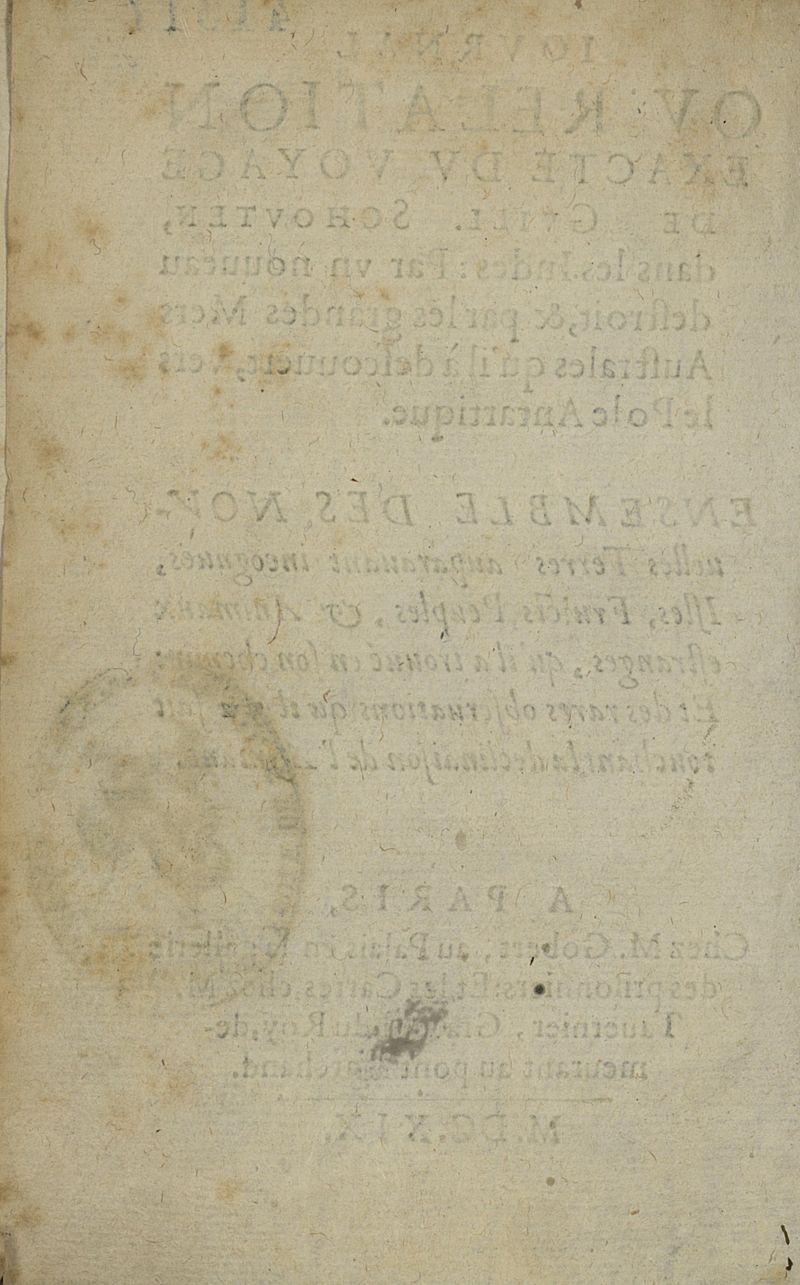 IOVRNAL
OV RELATION
EXACTE DV VOYAGE
DE GVILL. SCHOVTEN,
dans les Indes: Par vn nouueau
destroit, & par les grandes Mers
Australes qu'il a descouuert, vers
le Pole Antartique.
ENSEMBLE DES NOV-
uelles Terres auparauant incognues,
Isles, Fruicts, Peuples, & Animaux
estranges, qu'il a trouué en son chemin:
Et des rares obseruations qu'il y a fait
touchant la declinaison de l'
A PARIS,
Chez M. Gobert, au Palais en la Gallerie
des prisonniers: Et les Cartes chez M.
Tauernier, Graueur du Roy, de-
meurant au pont Marchand.
M.DC.XIX.